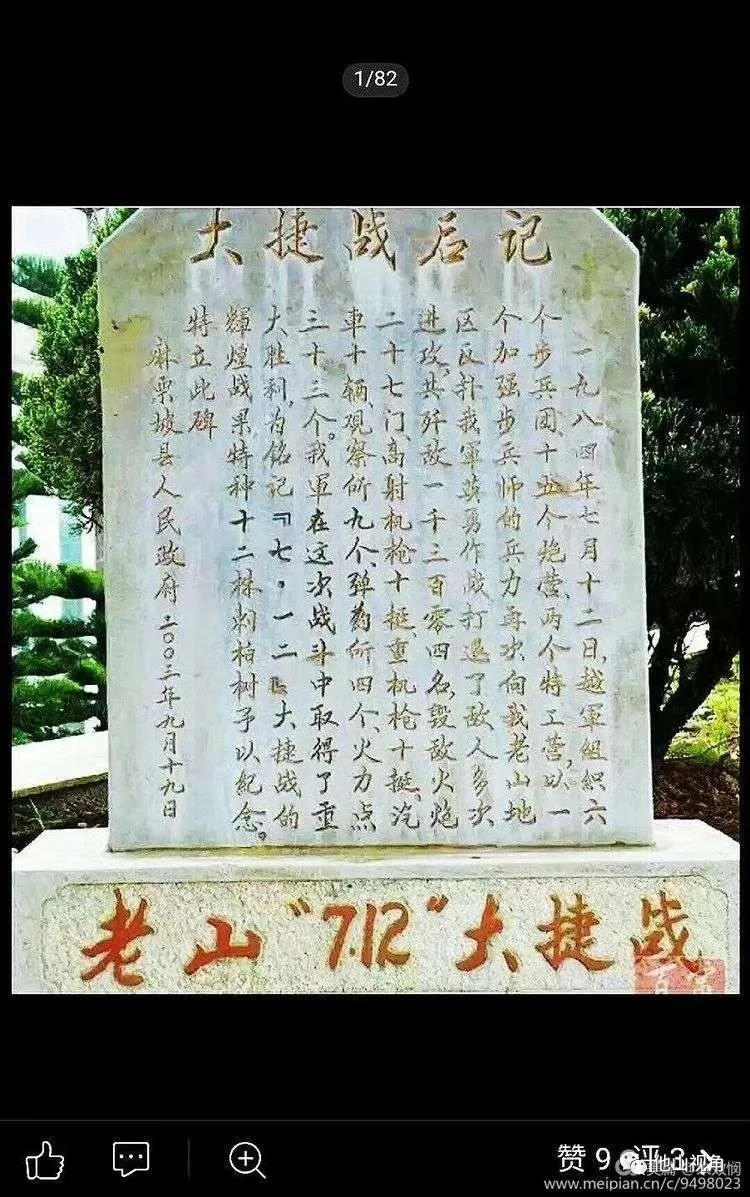 1/82
大捷战后记
一九八四年七月十二日,越軍组织六
个步兵团、十五个炮营、两个特工营,以一
个加强步兵师的兵力再次向我老山地
区反扑我軍英勇作战打退了敌人多次
进攻,共歼敌一千三百零四名,毁敌火炮
二十七门、高射机枪十挺、重机枪十挺、汽
車十辆、观察所九个、弹药所四个、火力点
三十三个。我軍在这次战斗中取得了重
大胜利,为铭记『七·一二』大捷战的
輝煌战果,特种十二株刺柏树予以紀念。
特立此碑
麻栗坡县人民政府 二00三年九月十九日
老山“7.12”大捷战
赞 9 评 3
www.meipian.cn/c/9498023